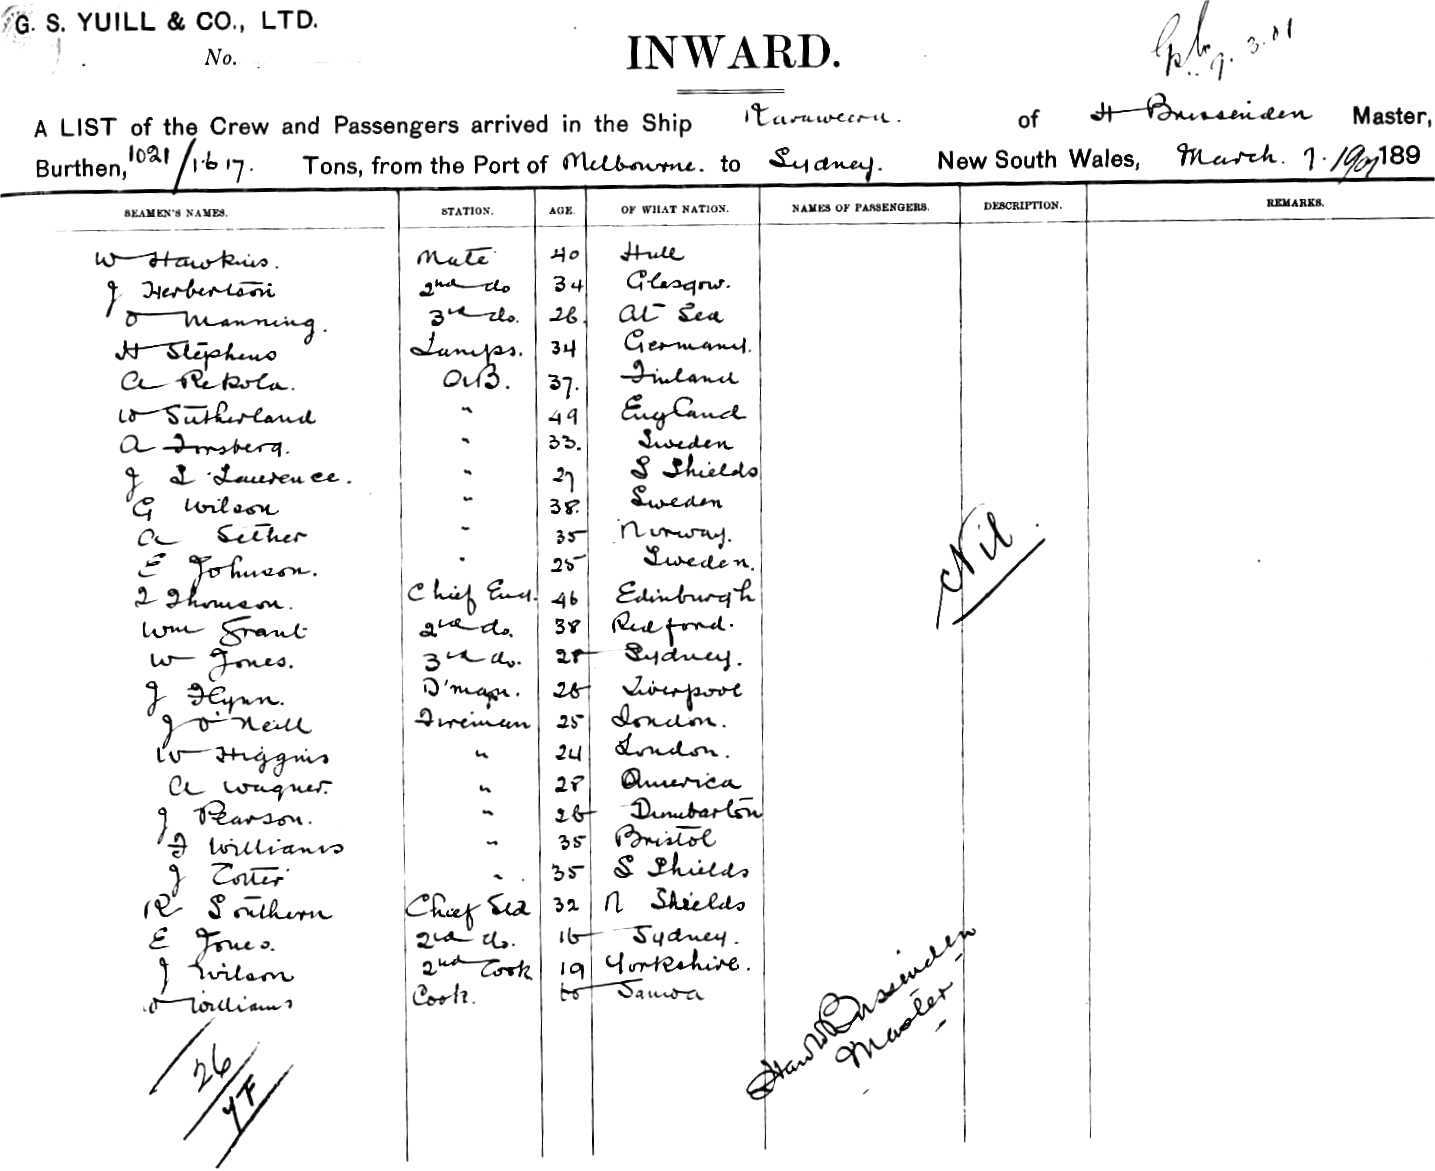 G. S. YUILL & CO., LTD.
No.
INWARD.
9. 3. 01
A LIST of the Crew and Passengers arrived in the Ship Karaweera. of H Brissenden Master,
Burthen, 1021/1617. Tons, from the Port of Melbourne. to Sydney. New South Wales, March. 7. 1901 189
SEAMEN'S NAMES. STATION. AGE. OF WHAT NATION. NAMES OF PASSENGERS. DESCRIPTION. REMARKS.
W Hawkins. Mate 40 Hull
J Herbertson 2nd do 34 Glasgow.
O Manning. 3rd do. 26 At Sea
H Stephens Lamps. 34 Germany.
A Rekola. A.B. 37. Finland
W Sutherland " 49 England
A Forsberg. " 33. Sweden
J L Lawrence. " 27 S Shields
G Wilson " 38. Sweden
A Sether " 35 Norway.
E Johnson. " 25 Sweden.
T Thomson. Chief Eng. 46 Edinburgh
Wm Grant 2nd do. 38 Redford.
W Jones. 3rd do. 28 Sydney.
J Flynn. D'man. 26 Liverpool
J O'Neill Fireman 25 London.
W Higgins " 24 London.
A Wagner. " 28 America
J Pearson. " 26 Dumbarton
F Williams " 35 Bristol
J Cotter " 35 S Shields
R Southern Chief Std 32 N Shields
E Jones. 2nd do. 16 Sydney.
J Wilson 2nd Cook 19 Yorkshire.
Williams Cook. Samoa
Nil
Brissenden
Master
26